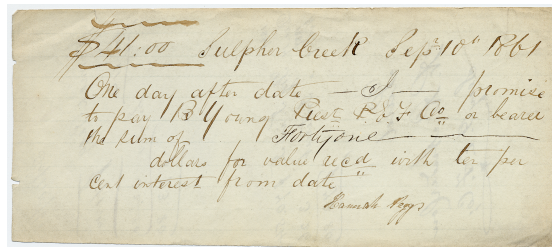 $41.00 Sulpher Creek Sept 10" 1861
One day after date — I — promise
to pay B Young Pust P. E. F Co or bearer
the sum of Fortyone
dollars for value recd with ten per
cent interest from date"
Hannah